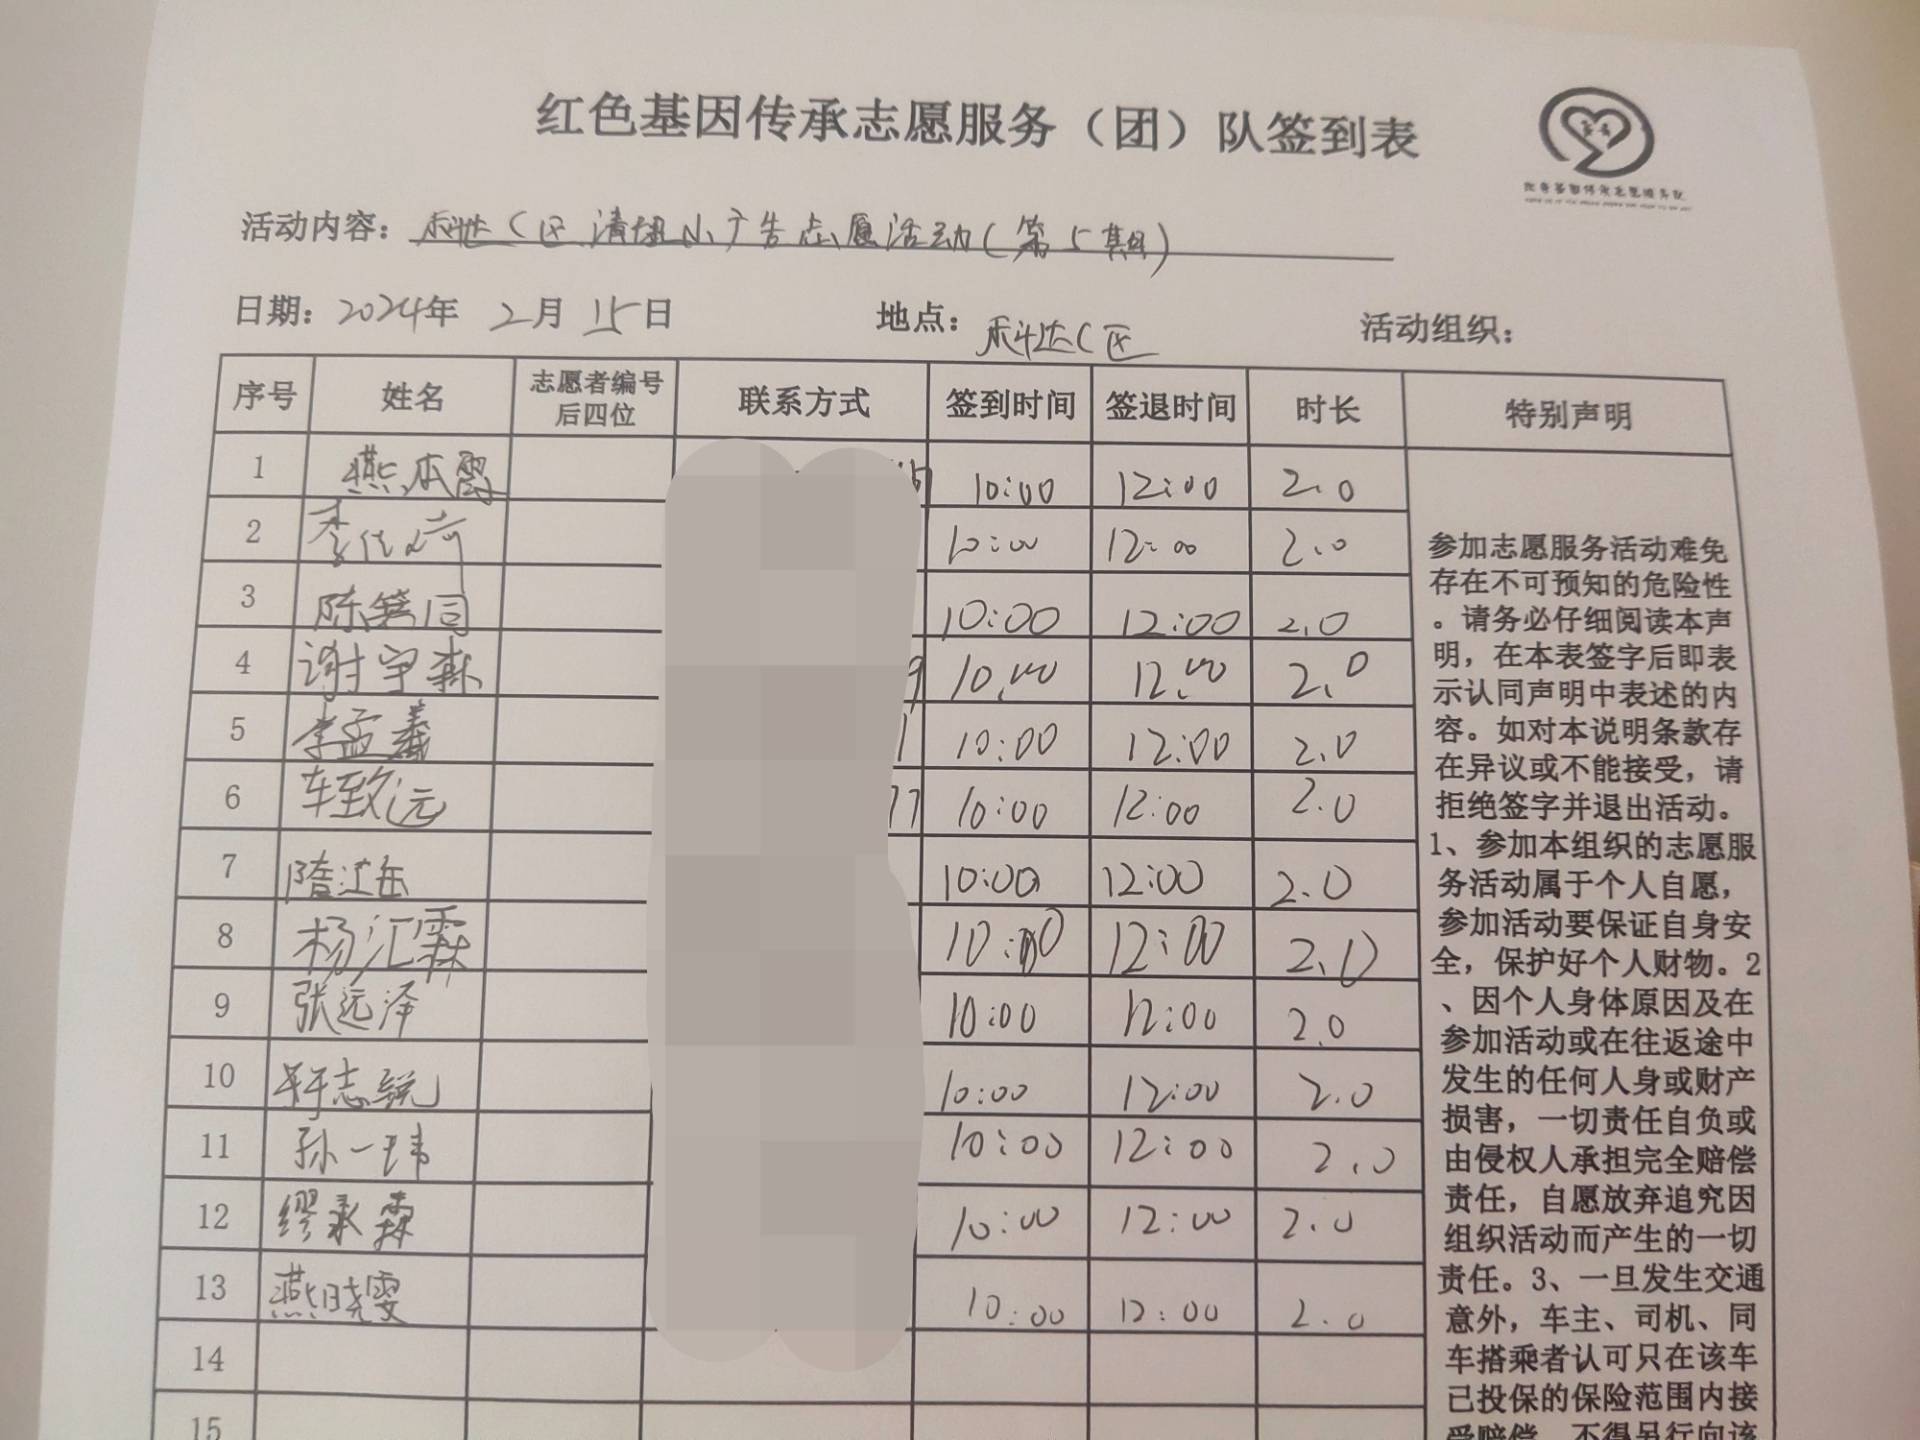 红色基因传承志愿服务（团）队签到表
活动内容：利达C区清理小广告志愿活动(第5期)
日期：2024年 2月 15日 地点：利达C区 活动组织：
序号 姓名 志愿者编号后四位 联系方式 签到时间 签退时间 时长 特别声明
1 燕本霞 10:00 12:00 2.0
2 李佳 10:00 12:00 2.0
3 陈 同 10:00 12:00 2.0
4 谢宇森 9 10:00 12:00 2.0
5 李孟羲 1 10:00 12:00 2.0
6 车致远 77 10:00 12:00 2.0
7 隋 岳 10:00 12:00 2.0
8 杨汇霖 10:00 12:00 2.0
9 张远泽 10:00 12:00 2.0
10 志锐 10:00 12:00 2.0
11 孙一玮 10:00 12:00 2.0
12 缪承霖 10:00 12:00 2.0
13 燕晓雯 10:00 12:00 2.0
14
15
参加志愿服务活动难免
存在不可预知的危险性
。请务必仔细阅读本声
明，在本表签字后即表
示认同声明中表述的内
容。如对本说明条款存
在异议或不能接受，请
拒绝签字并退出活动。
1、参加本组织的志愿服
务活动属于个人自愿，
参加活动要保证自身安
全，保护好个人财物。2
、因个人身体原因及在
参加活动或在往返途中
发生的任何人身或财产
损害，一切责任自负或
由侵权人承担完全赔偿
责任，自愿放弃追究因
组织活动而产生的一切
责任。3、一旦发生交通
意外，车主、司机、同
车搭乘者认可只在该车
已投保的保险范围内接
受赔偿，不得另行向该